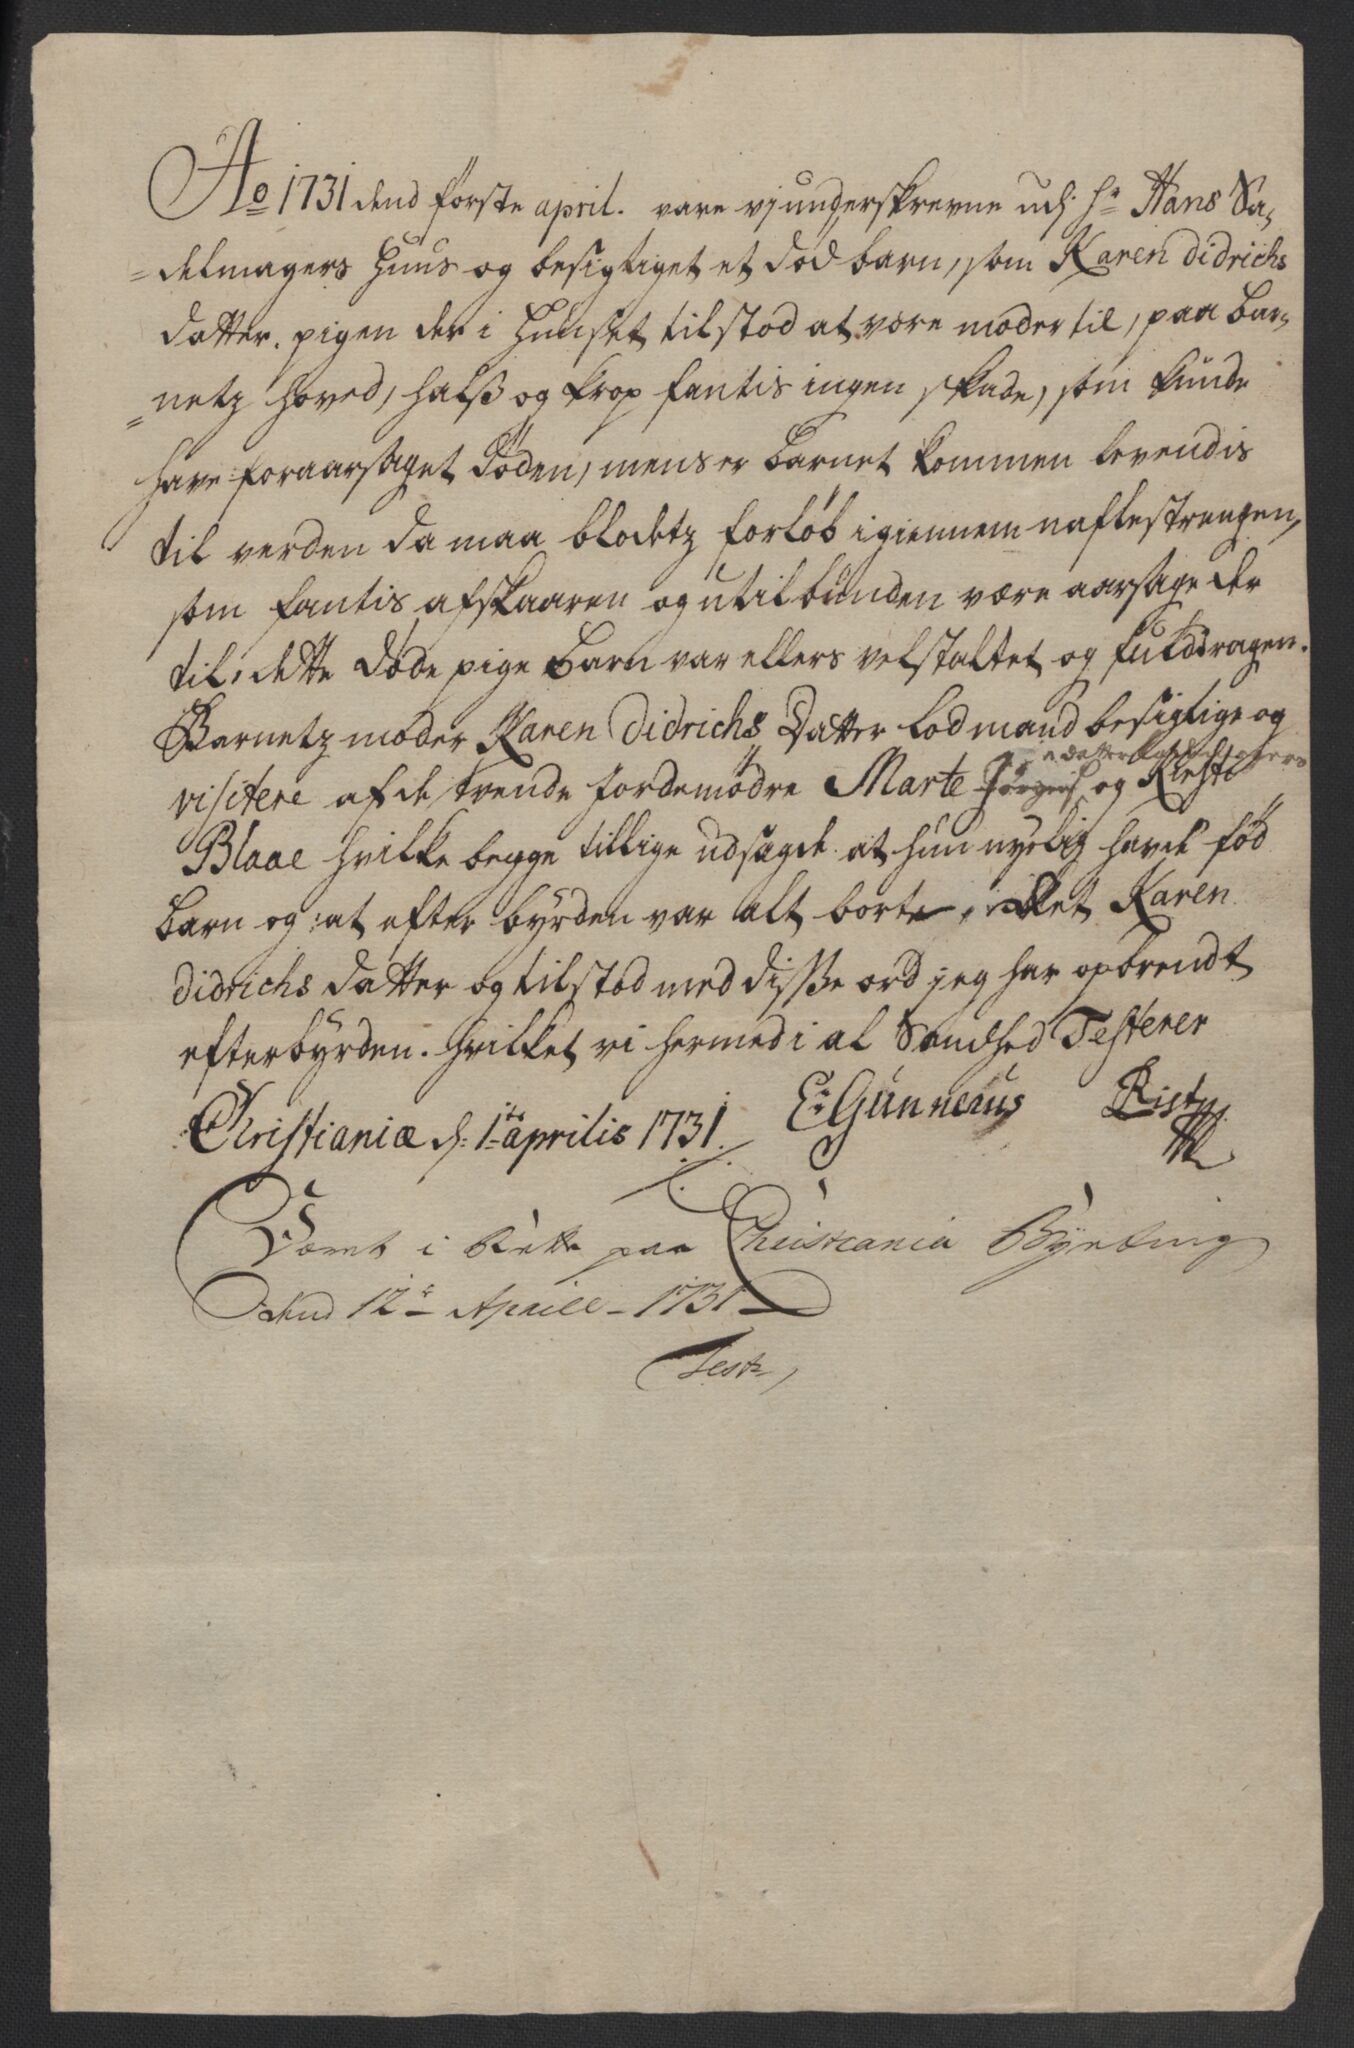 Ao 1731 dend förste april. vare vj underskrevne udj hr Hans Sa=
=delmagers Huus og besigtiget et død barn, som Karen Didrichs
datter, pigen der i Huuset tilstod at være moder til, paa Bar=
=netz hoved, halß og krop fantis ingen skade, som kunde
have foraarsaget Döden, mens er Barnet kommen levendis
til verden da maa blodetz forlöb igiennem naflestrengen,
som fantis afskaaren og utilbunden være aarsage der
til, dette døde pige Barn var ellers velstaltet og fulddragen.
Barnetz moder Karen Didrichs Datter lod mand besigtige og
visitere af de tvende Jordemødre Marte og Kirsti
Blaae hvilke begge tillige udsagde at hun nyelig havde föd
Barn og at efter byrden var alt borte, Karen
Didrichs datter og tilstod med disse ord jeg har opbrendt
efterbyrden. hvilket vi hermed i al Sandhed Testerer
Christianiæ d: 1te aprilis 1731. E: Gunnerus Rist
Været i Rette paa Christiania Byeting
dend 12te Aprill 1731
Test